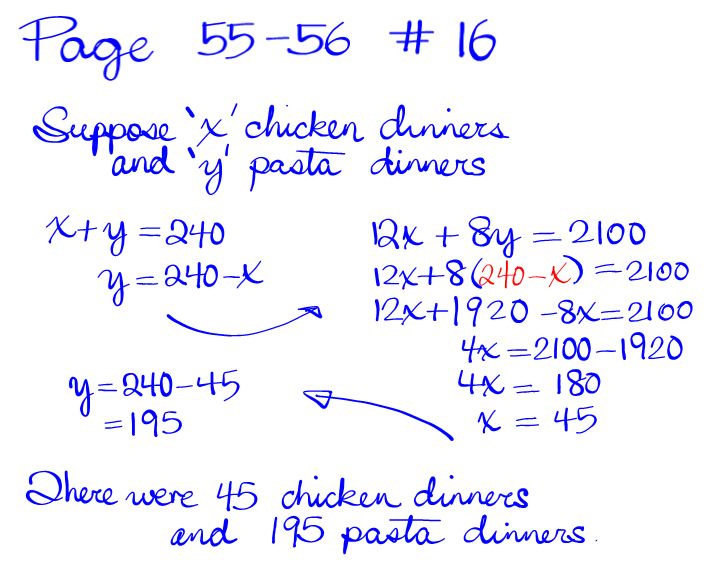 Page 55-56 # 16
Suppose 'x' chicken dinners
and 'y' pasta dinners
x+y=240
y=240-x
12x + 8y = 2100
12x+8(240-x) = 2100
12x+1920 -8x=2100
4x=2100-1920
4x = 180
x = 45
y=240-45
=195
There were 45 chicken dinners
and 195 pasta dinners.